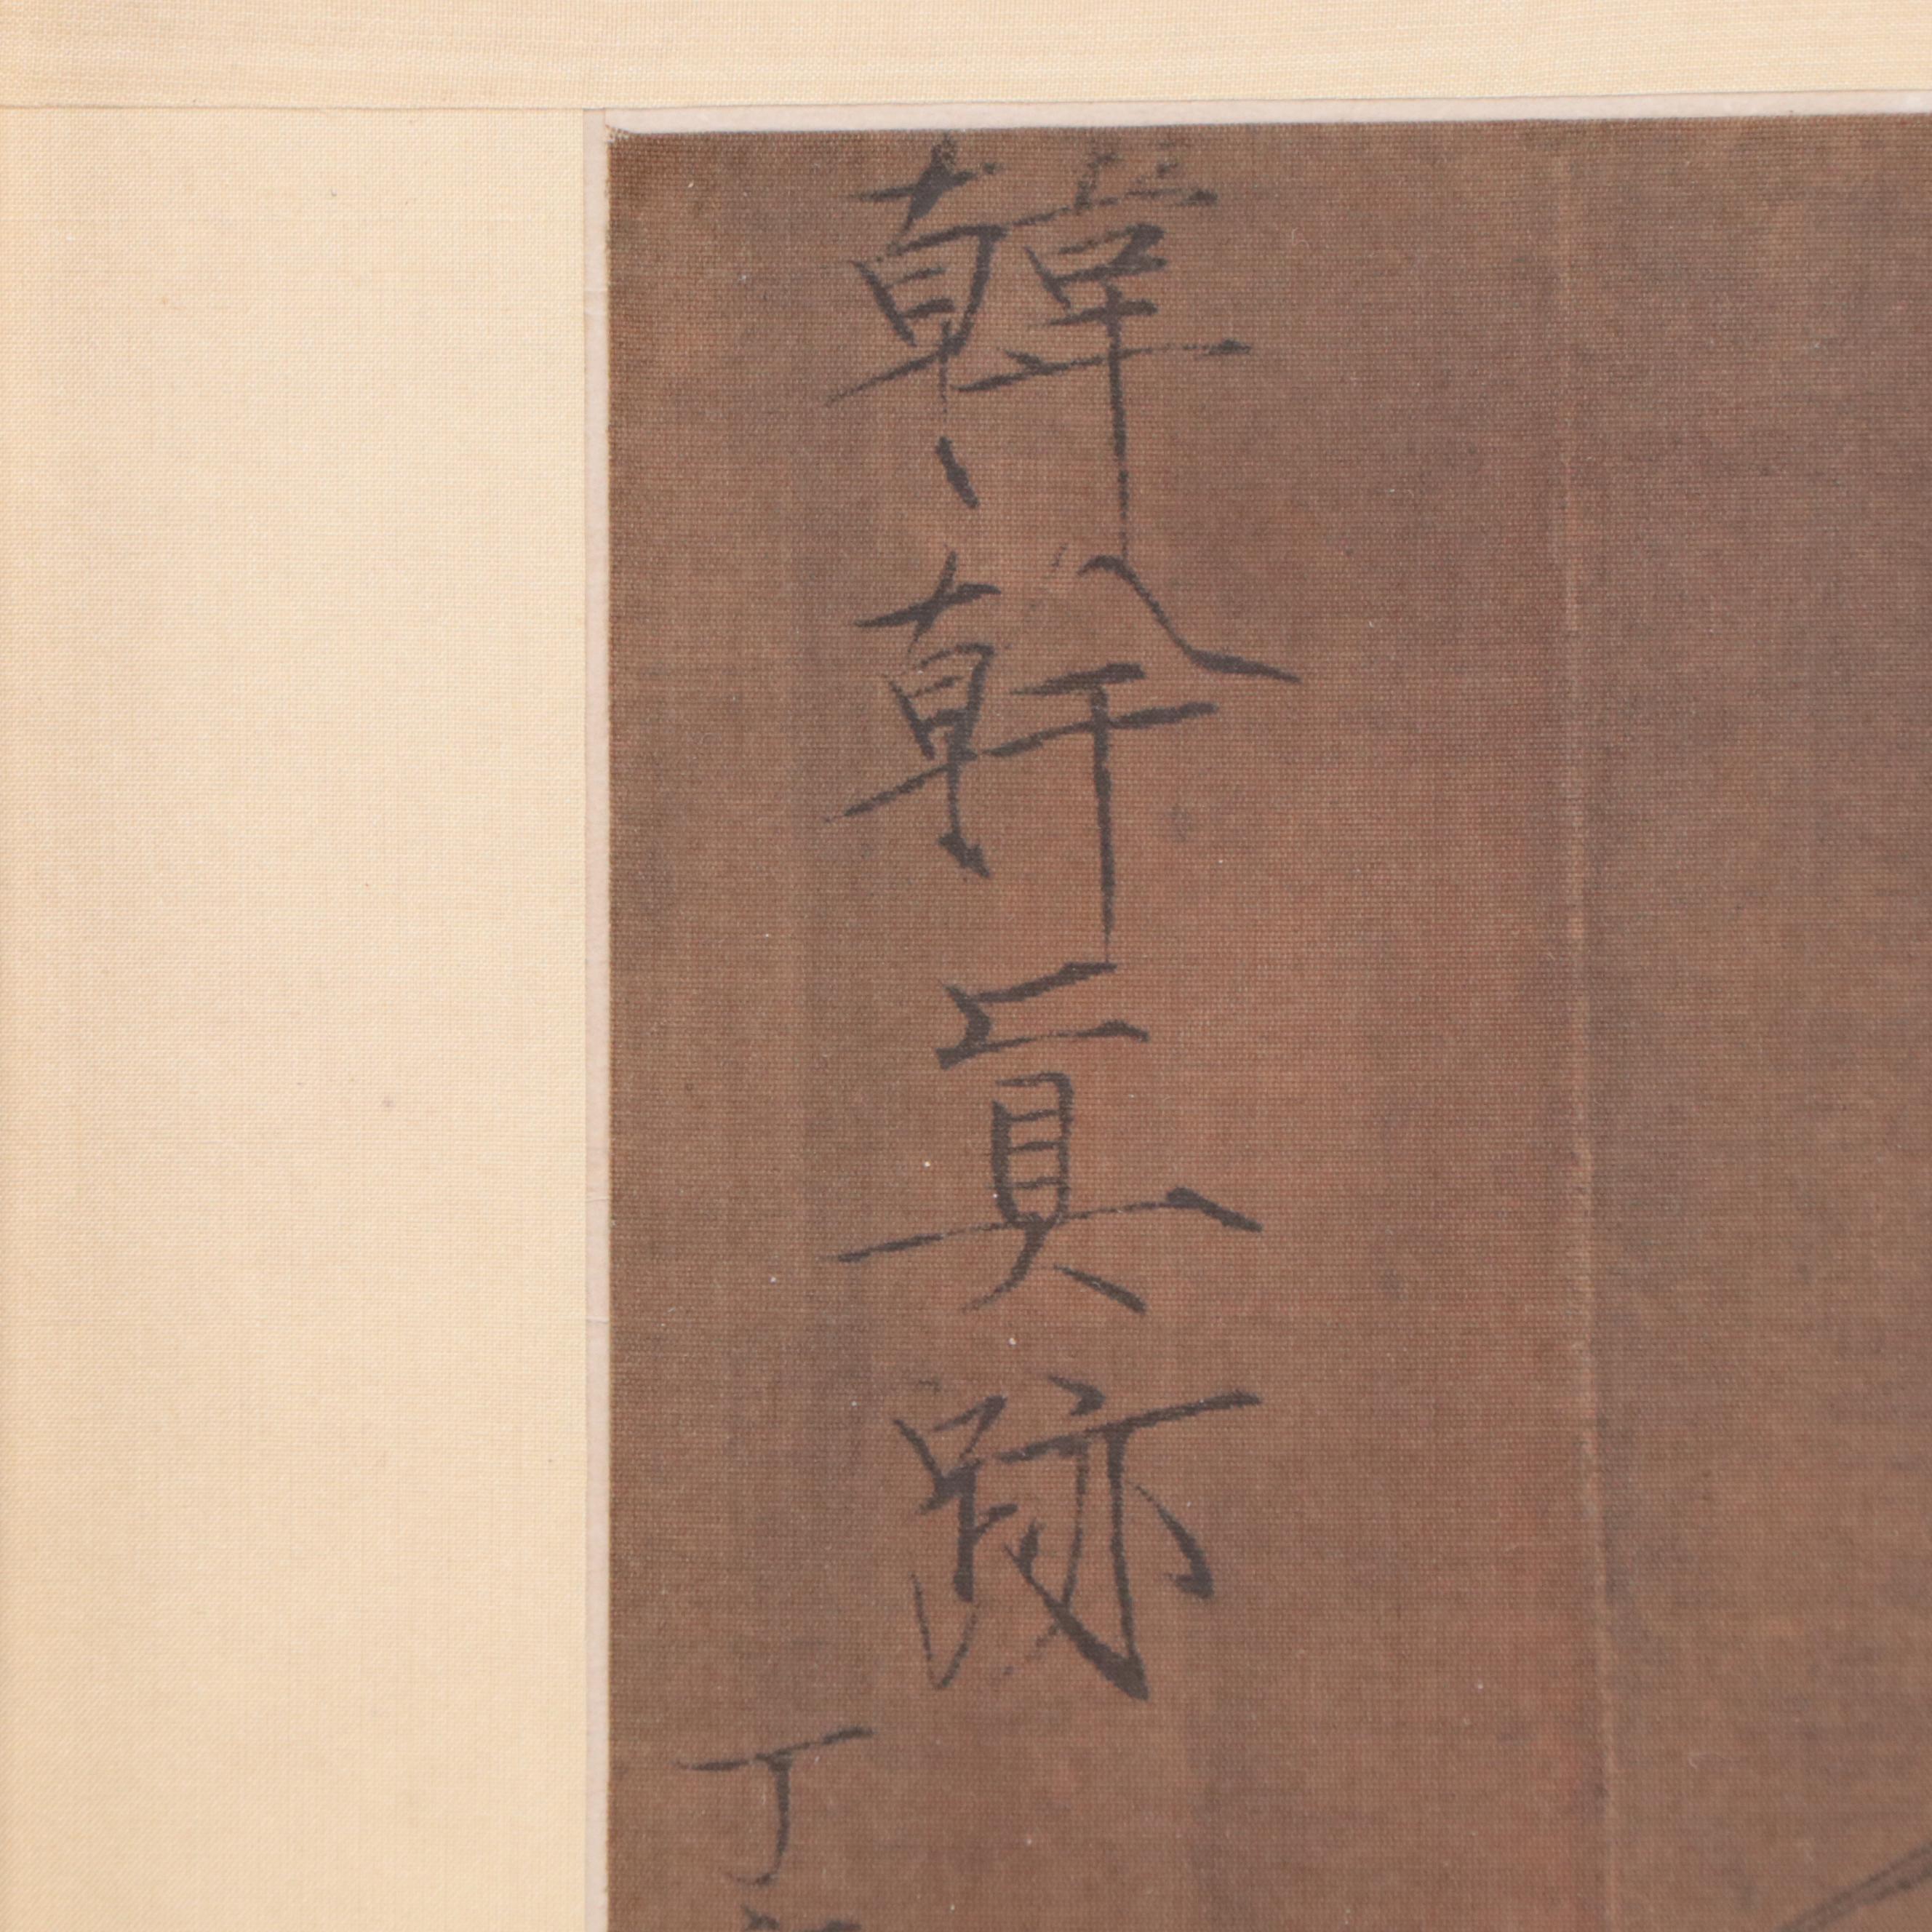 韓幹真跡
丁